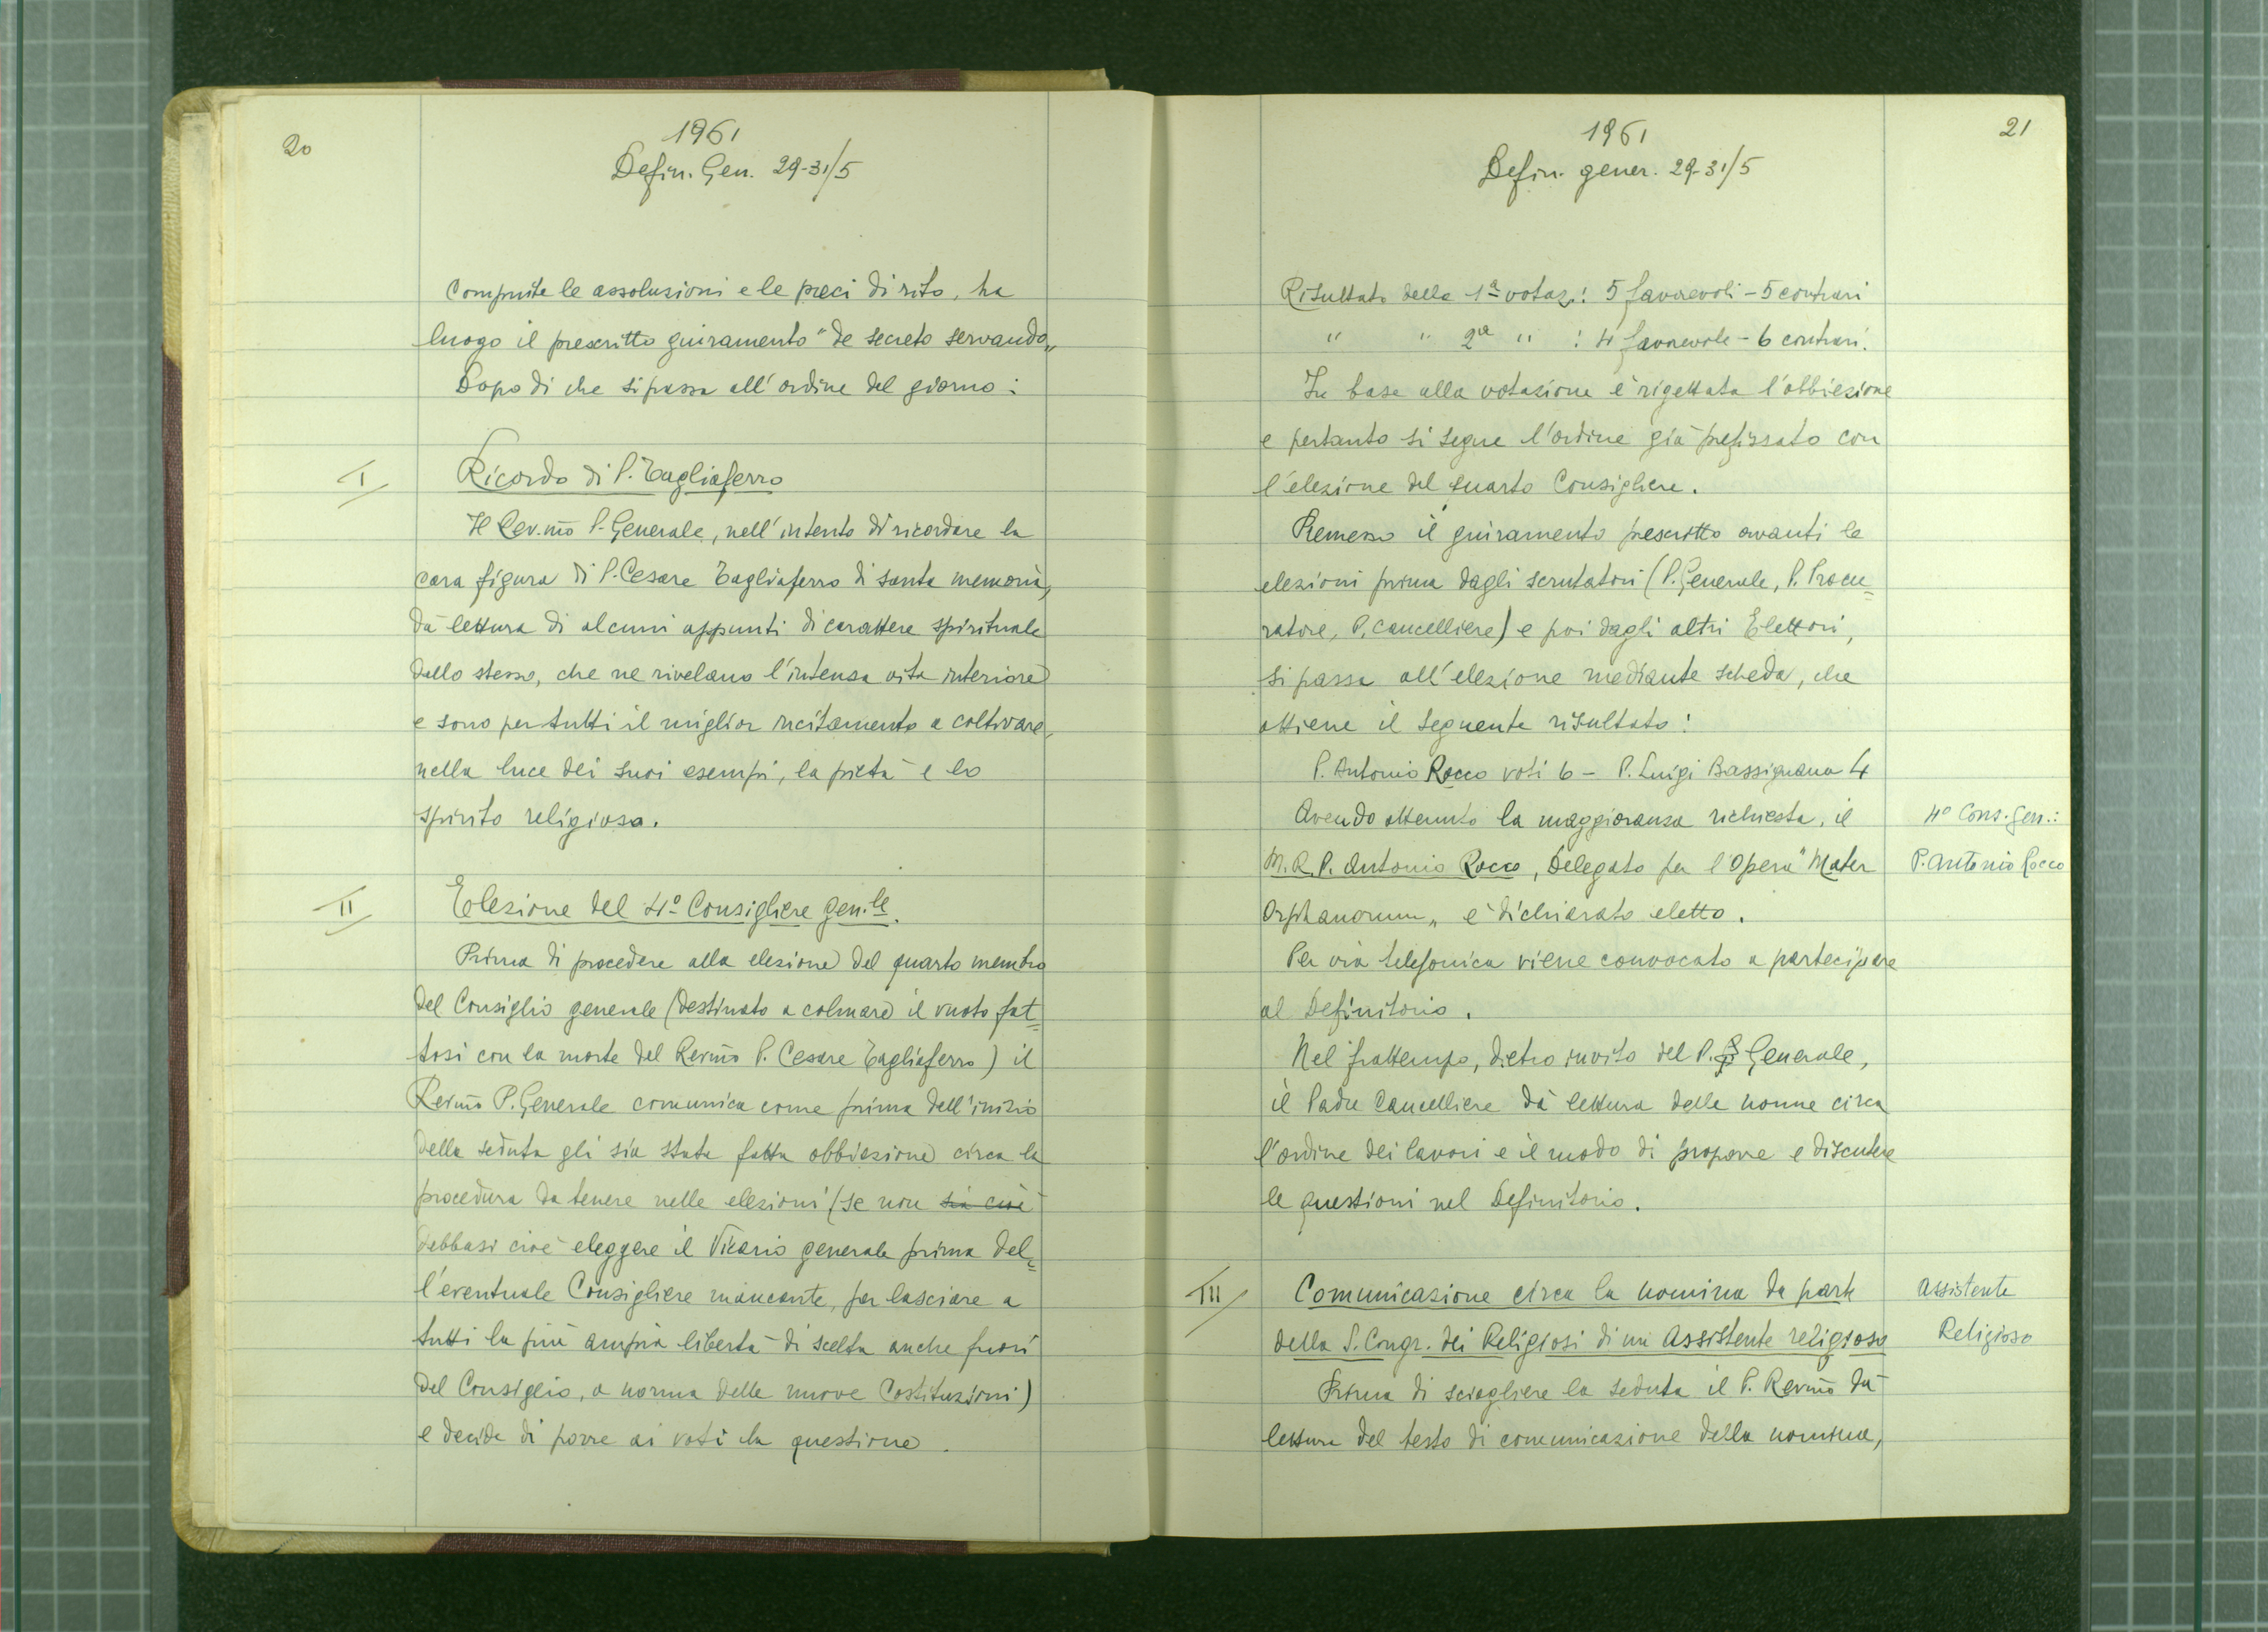 20
1961
Defin. Gen. 29-31/5
Compiute le assoluzioni e le preci di rito, ha
luogo il prescritto giuramento "de secreto servando„
Dopo di che si passa all'ordine del giorno:
I
Ricordo di P. Tagliaferro
Il Rev.mo P. Generale, nell'intento di ricordare la
cara figura di P. Cesare Tagliaferro di santa memoria,
dà lettura di alcuni appunti di carattere spirituale
dello stesso, che ne rivelano l'intensa vita interiore
e sono per tutti il miglior incitamento a coltivare,
nella luce dei suoi esempi, la pietà e lo
spirito religioso.
II
Elezione del 4º Consigliere gen.le.
Prima di procedere alla elezione del quarto membro
del Consiglio generale (destinato a colmare il vuoto fat=
tosi con la morte del Rev.mo P. Cesare Tagliaferro) il
Rev.mo P. Generale comunica come prima dell'inizio
della seduta gli sia stata fatta obbiezione circa la
procedura da tenere nelle elezioni (se non sia cioè
debbasi cioè eleggere il Vicario generale prima del=
l'eventuale Consigliere mancante, per lasciare a
tutti la più ampia libertà di scelta anche fuori
del Consiglio, a norma delle nuove Costituzioni)
e decide di porre ai voti la questione.
21
1961
Defin. gener. 29-31/5
Risultato della 1ª votaz.: 5 favorevoli - 5 contrari
" " 2ª " : 4 favorevole - 6 contrari.
In base alla votazione è rigettata l'obbiezione
e pertanto si segue l'ordine già prefissato con
l'elezione del quarto Consigliere.
Premesso il giuramento prescritto avanti le
elezioni prima dagli scrutatori (P. Generale, P. Procu=
ratore, P. Cancelliere) e poi dagli altri Elettori,
si passa all'elezione mediante scheda, che
ottiene il seguente risultato:
P. Antonio Rocco voti 6 - P. Luigi Bassignana 4
Avendo ottenuto la maggioranza richiesta, il
M.R.P. Antonio Rocco, Delegato per l'Opera "Mater
Orphanorum„ è dichiarato eletto.
4º Cons. Gen.:
P. Antonio Rocco
Per via telefonica viene convocato a partecipare
al Definitorio.
Nel frattempo, dietro invito del P. Generale,
il Padre Cancelliere dà lettura delle norme circa
l'ordine dei lavori e il modo di proporre e discutere
le questioni nel Definitorio.
III
Comunicazione circa la nomina da parte
della S. Congr. dei Religiosi di un Assistente religioso
Assistente
Religioso
Prima di sciogliere la seduta il P. Rev.mo dà
lettura del testo di comunicazione della nomina,